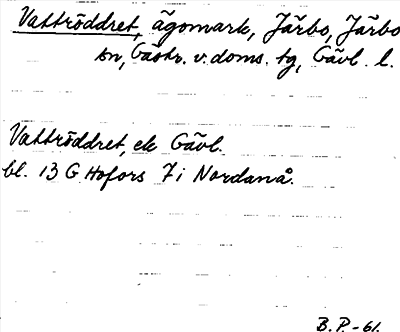 Vattröddret, ägomark, Järbo, Järbo
sn, Gästr. v. doms. tg, Gävl. l.
Vattröddret, ek Gävl.
bl. 13 G Hofors 7 i Nordanå.
B. P. -61.